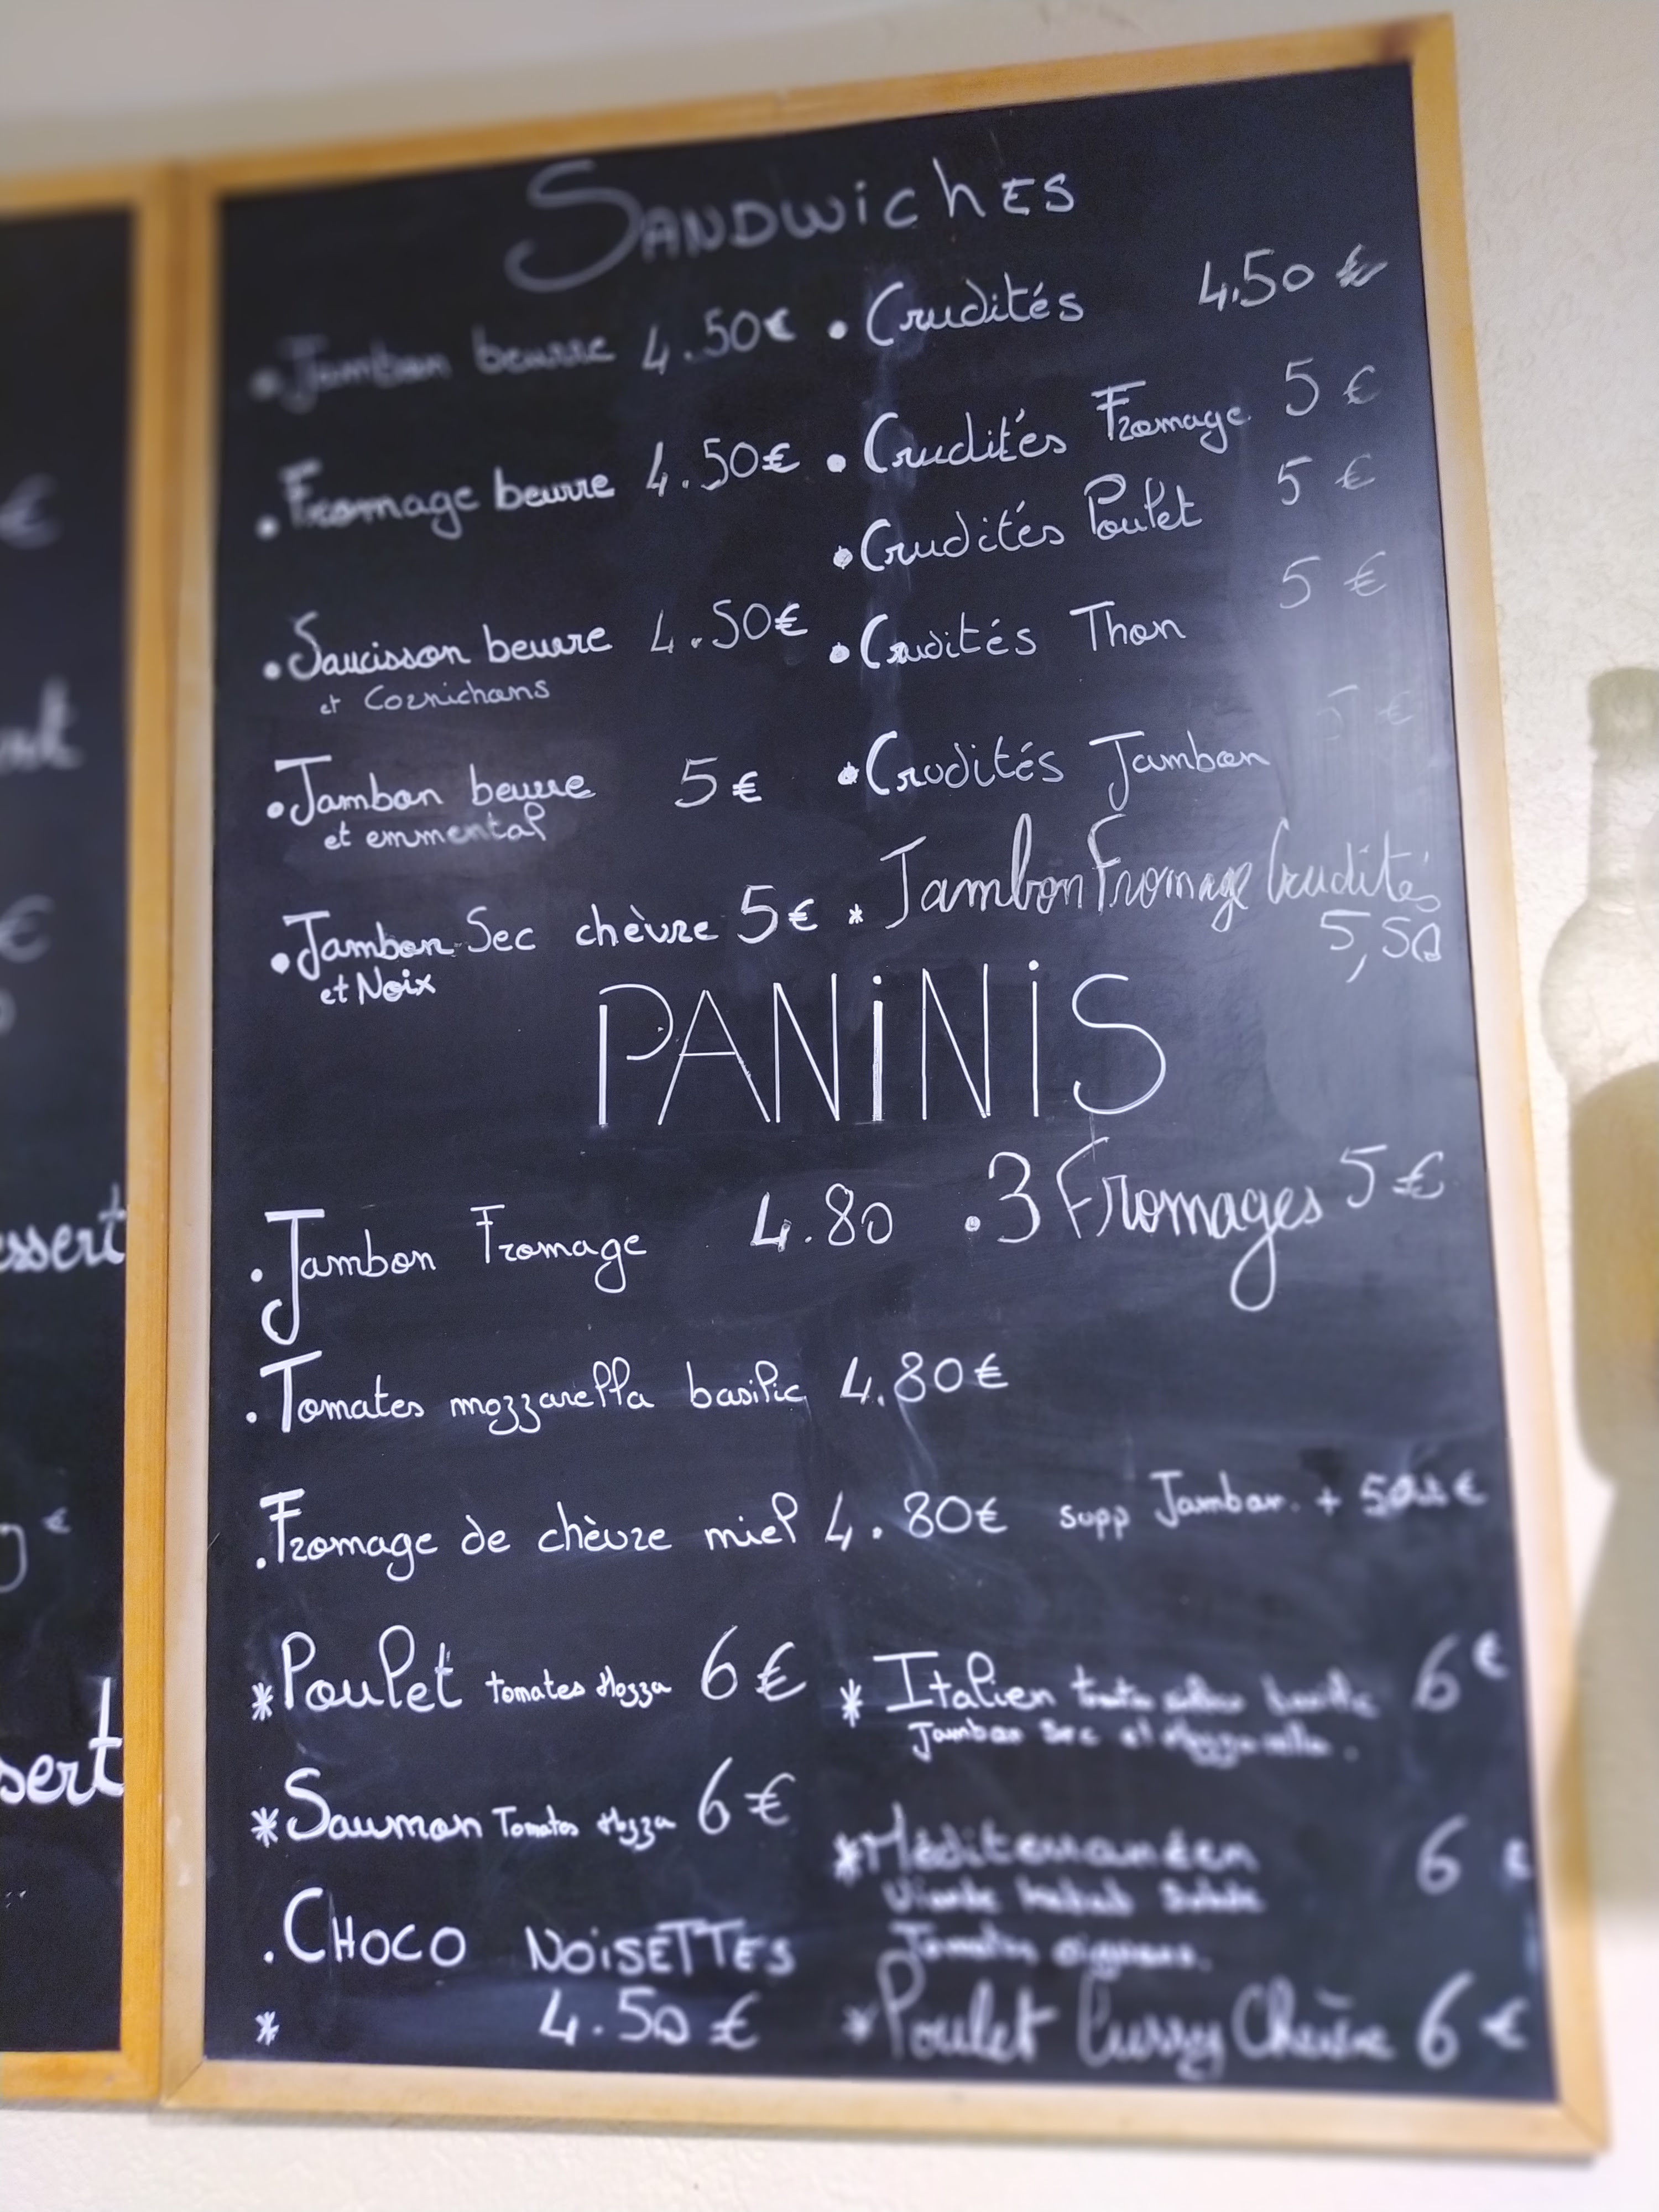 SANDWiChES
• Jambon beurre 4.50€ • Crudités 4.50 €
• Fromage beurre 4.50€ • Crudités Fromage 5 €
• Crudités Poulet 5 €
• Saucisson beurre 4.50€ • Crudités Thon 5 €
et Cornichons
• Jambon beurre 5€ • Crudités Jambon 5 €
et emmental
• Jambon Sec chèvre 5€ * Jambon Fromage Crudités
et Noix 5,50
PANiNiS
. Jambon Fromage 4.80 . 3 Fromages 5€
. Tomates mozzarella basilic 4.80€
. Fromage de chèvre miel 4.80€ supp Jambon. +
* Poulet tomates Mozza 6€ * Italien basilic 6€
Jambon Sec et Mozzarella.
* Saumon Tomates Mozza 6€
* Méditerranéen 6 €
Viande kebab Salade
Tomates oignons.
. CHOCO NOiSETTES
* 4.50€ * Poulet Curry Chèvre 6€
€
€
essert
€
sert